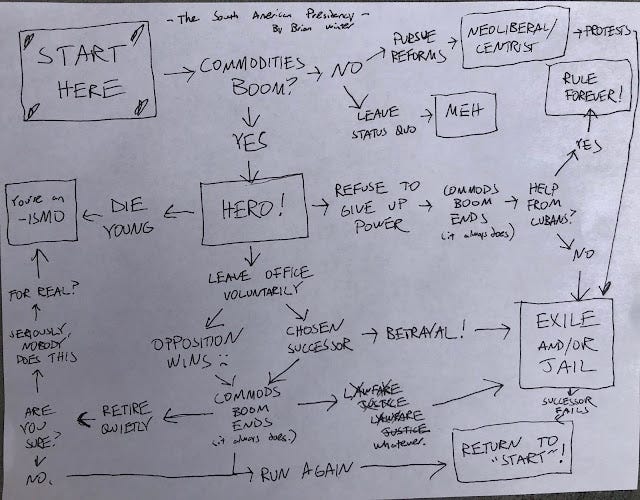 - The South American Presidency -
By Brian Winter
START
HERE
COMMODITIES
BOOM?
NO
PURSUE
REFORMS
NEOLIBERAL/
CENTRIST
PROTESTS
LEAVE
STATUS QUO
MEH
RULE
FOREVER!
YES
YES
You're an
-ISMO
DIE
YOUNG
HERO!
REFUSE TO
GIVE UP
POWER
COMMODS
BOOM
ENDS
(it always does)
HELP
FROM
CUBANS?
NO
LEAVE OFFICE
VOLUNTARILY
FOR REAL?
SERIOUSLY,
NOBODY
DOES THIS
OPPOSITION
WINS :(
CHOSEN
SUCCESSOR
BETRAYAL!
EXILE
AND/OR
JAIL
ARE
YOU
SURE?
RETIRE
QUIETLY
COMMODS
BOOM
ENDS
(it always does.)
LAWFARE
JUSTICE
LAWFARE
JUSTICE
whatever.
SUCCESSOR
FAILS
RETURN TO
"START"!
NO.
RUN AGAIN